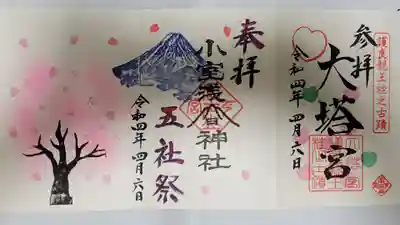 参拝
大塔宮
令和四年 四月六日
護良親王社之古蹟
奉拝
小室浅間神社
五社祭
令和四年 四月六日